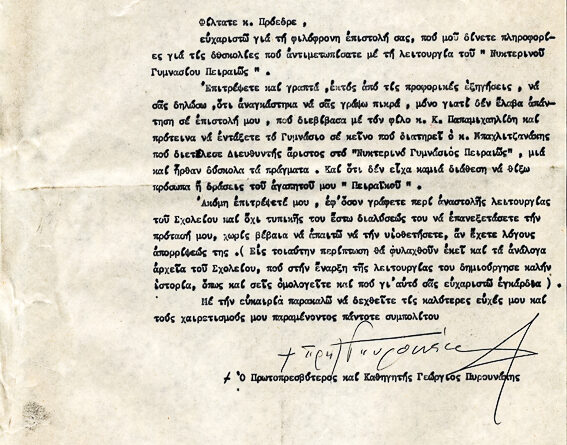 Φίλτατε κ. Πρόεδρε ,
εὐχαριστῶ γιά τή φιλόφρονη ἐπιστολή σας, πού μοῦ δίνετε πληροφορί-
ες γιά τίς δυσκολίες πού ἀντιμετωπίσατε μέ τή λειτουργία τοῦ " Νυκτερινοῦ
Γυμνασίου Πειραιῶς " .
Ἐπιτρέψετε καί γραπτά ,ἐκτός ἀπό τίς προφορικές ἐξηγήσεις , νά
σᾶς δηλώσω ,ὅτι ἀναγκάστηκα νά σᾶς γράψω πικρά , μόνο γιατί δέν ἔλαβα ἀπάν-
τηση σέ ἐπιστολή μου , πού διεβίβασα μέ τόν φίλο κ. Κ. Παπαμιχαηλίδη καί
πρότεινα νά ἐντάξετε τό Γυμνάσιο σέ κεῖνο πού διατηρεῖ ὁ κ. Μπαχλιτζανάκης
πού διετέλεσε Διευθυντής ἄριστος στό "Νυκτερινό Γυμνάσιος Πειραιῶς ", μιά
καί ἦρθαν δύσκολα τά πράγματα . Καί ὅτι δέν εἶχα καμιά διάθεση νά θίξω
πρόσωπα ἤ δράσεις τοῦ ἀγαπητοῦ μου " Πειραϊκοῦ " .
Ἀκόμη ἐπιτρέψετέ μου , ἐφ'ὅσον γράφετε περί ἀναστολῆς λειτουργίας
τοῦ Σχολείου καί ὄχι τυπικῆς του ἔστω διαλύσεώς του νά ἐπανεξετάσετε τήν
πρότασή μου, χωρίς βέβαια νά ἀπαιτῶ νά τήν υἱοθετήσετε, ἄν ἔχετε λόγους
ἀπορρίψεώς της .( Εἰς τοιαύτην περίπτωση θά φυλαχθοῦν ἐκεῖ καί τά ἀνάλογα
ἀρχεῖα τοῦ Σχολείου, πού στήν ἔναρξη τῆς λειτουργίας του δημιούργησε καλήν
ἱστορία, ὅπως καί σεῖς ὁμολογεῖτε καί πού γι'αὐτό σᾶς εὐχαριστῶ ἐγκάρδια ) .
Μέ τήν εὐκαιρία παρακαλῶ νά δεχθεῖτε τίς καλύτερες εὐχές μου καί
τούς χαιρετισμούς μου παραμένοντος πάντοτε συμπολίτου
+ Ὁ Πρωτοπρεσβύτερος καί Καθηγητής Γεώργιος Πυρουνάκης